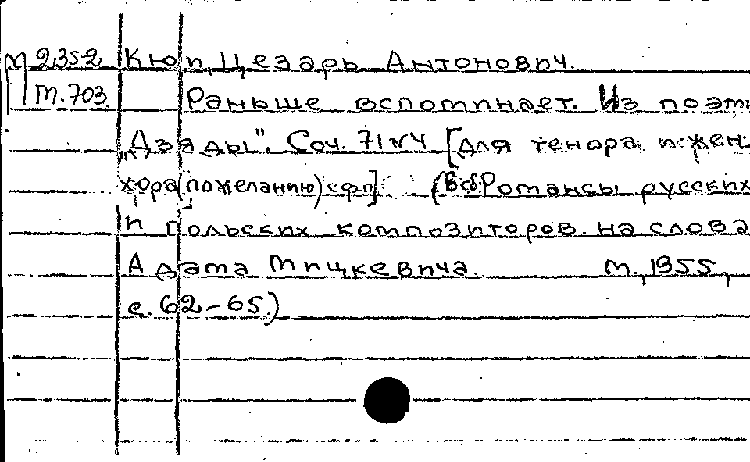 М 2352 Кюи, Цезарь Антонович.
М.703 Раньше вспоминает. Из поэмы
„Дзяды". Соч. 71 №4 [для тенора и жен.
хора (по желанию) с фп] (В сб Романсы русских
и польских композиторов на слова
Адама Мицкевича. М., 1955,
с. 62-65)